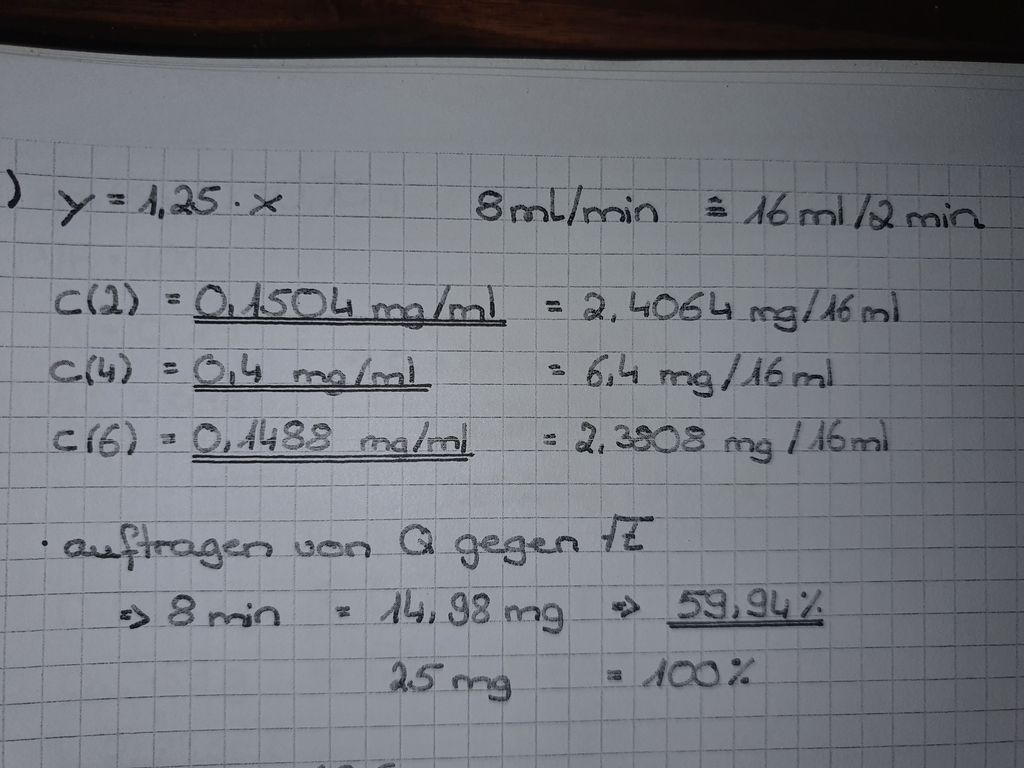 ) y = 1,25 · x 8ml/min ≙ 16ml/2min
c(2) = 0,1504 mg/ml = 2,4064 mg/16ml
c(4) = 0,4 mg/ml = 6,4 mg/16ml
c(6) = 0,1488 mg/ml = 2,3808 mg/16ml
· auftragen von Q gegen √t
=> 8 min = 14,98 mg => 59,94%
25 mg = 100%